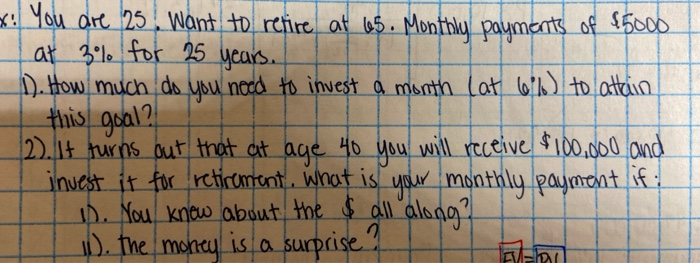 x: You are 25. Want to retire at 65. Monthly payments of $5000
at 3% for 25 years.
1). How much do you need to invest a month (at 6%) to attain
this goal?
2). It turns out that at age 40 you will receive $100,000 and
invest it for retirement. What is your monthly payment if:
1). You knew about the $ all along?
11). the money is a surprise?
FV = PV